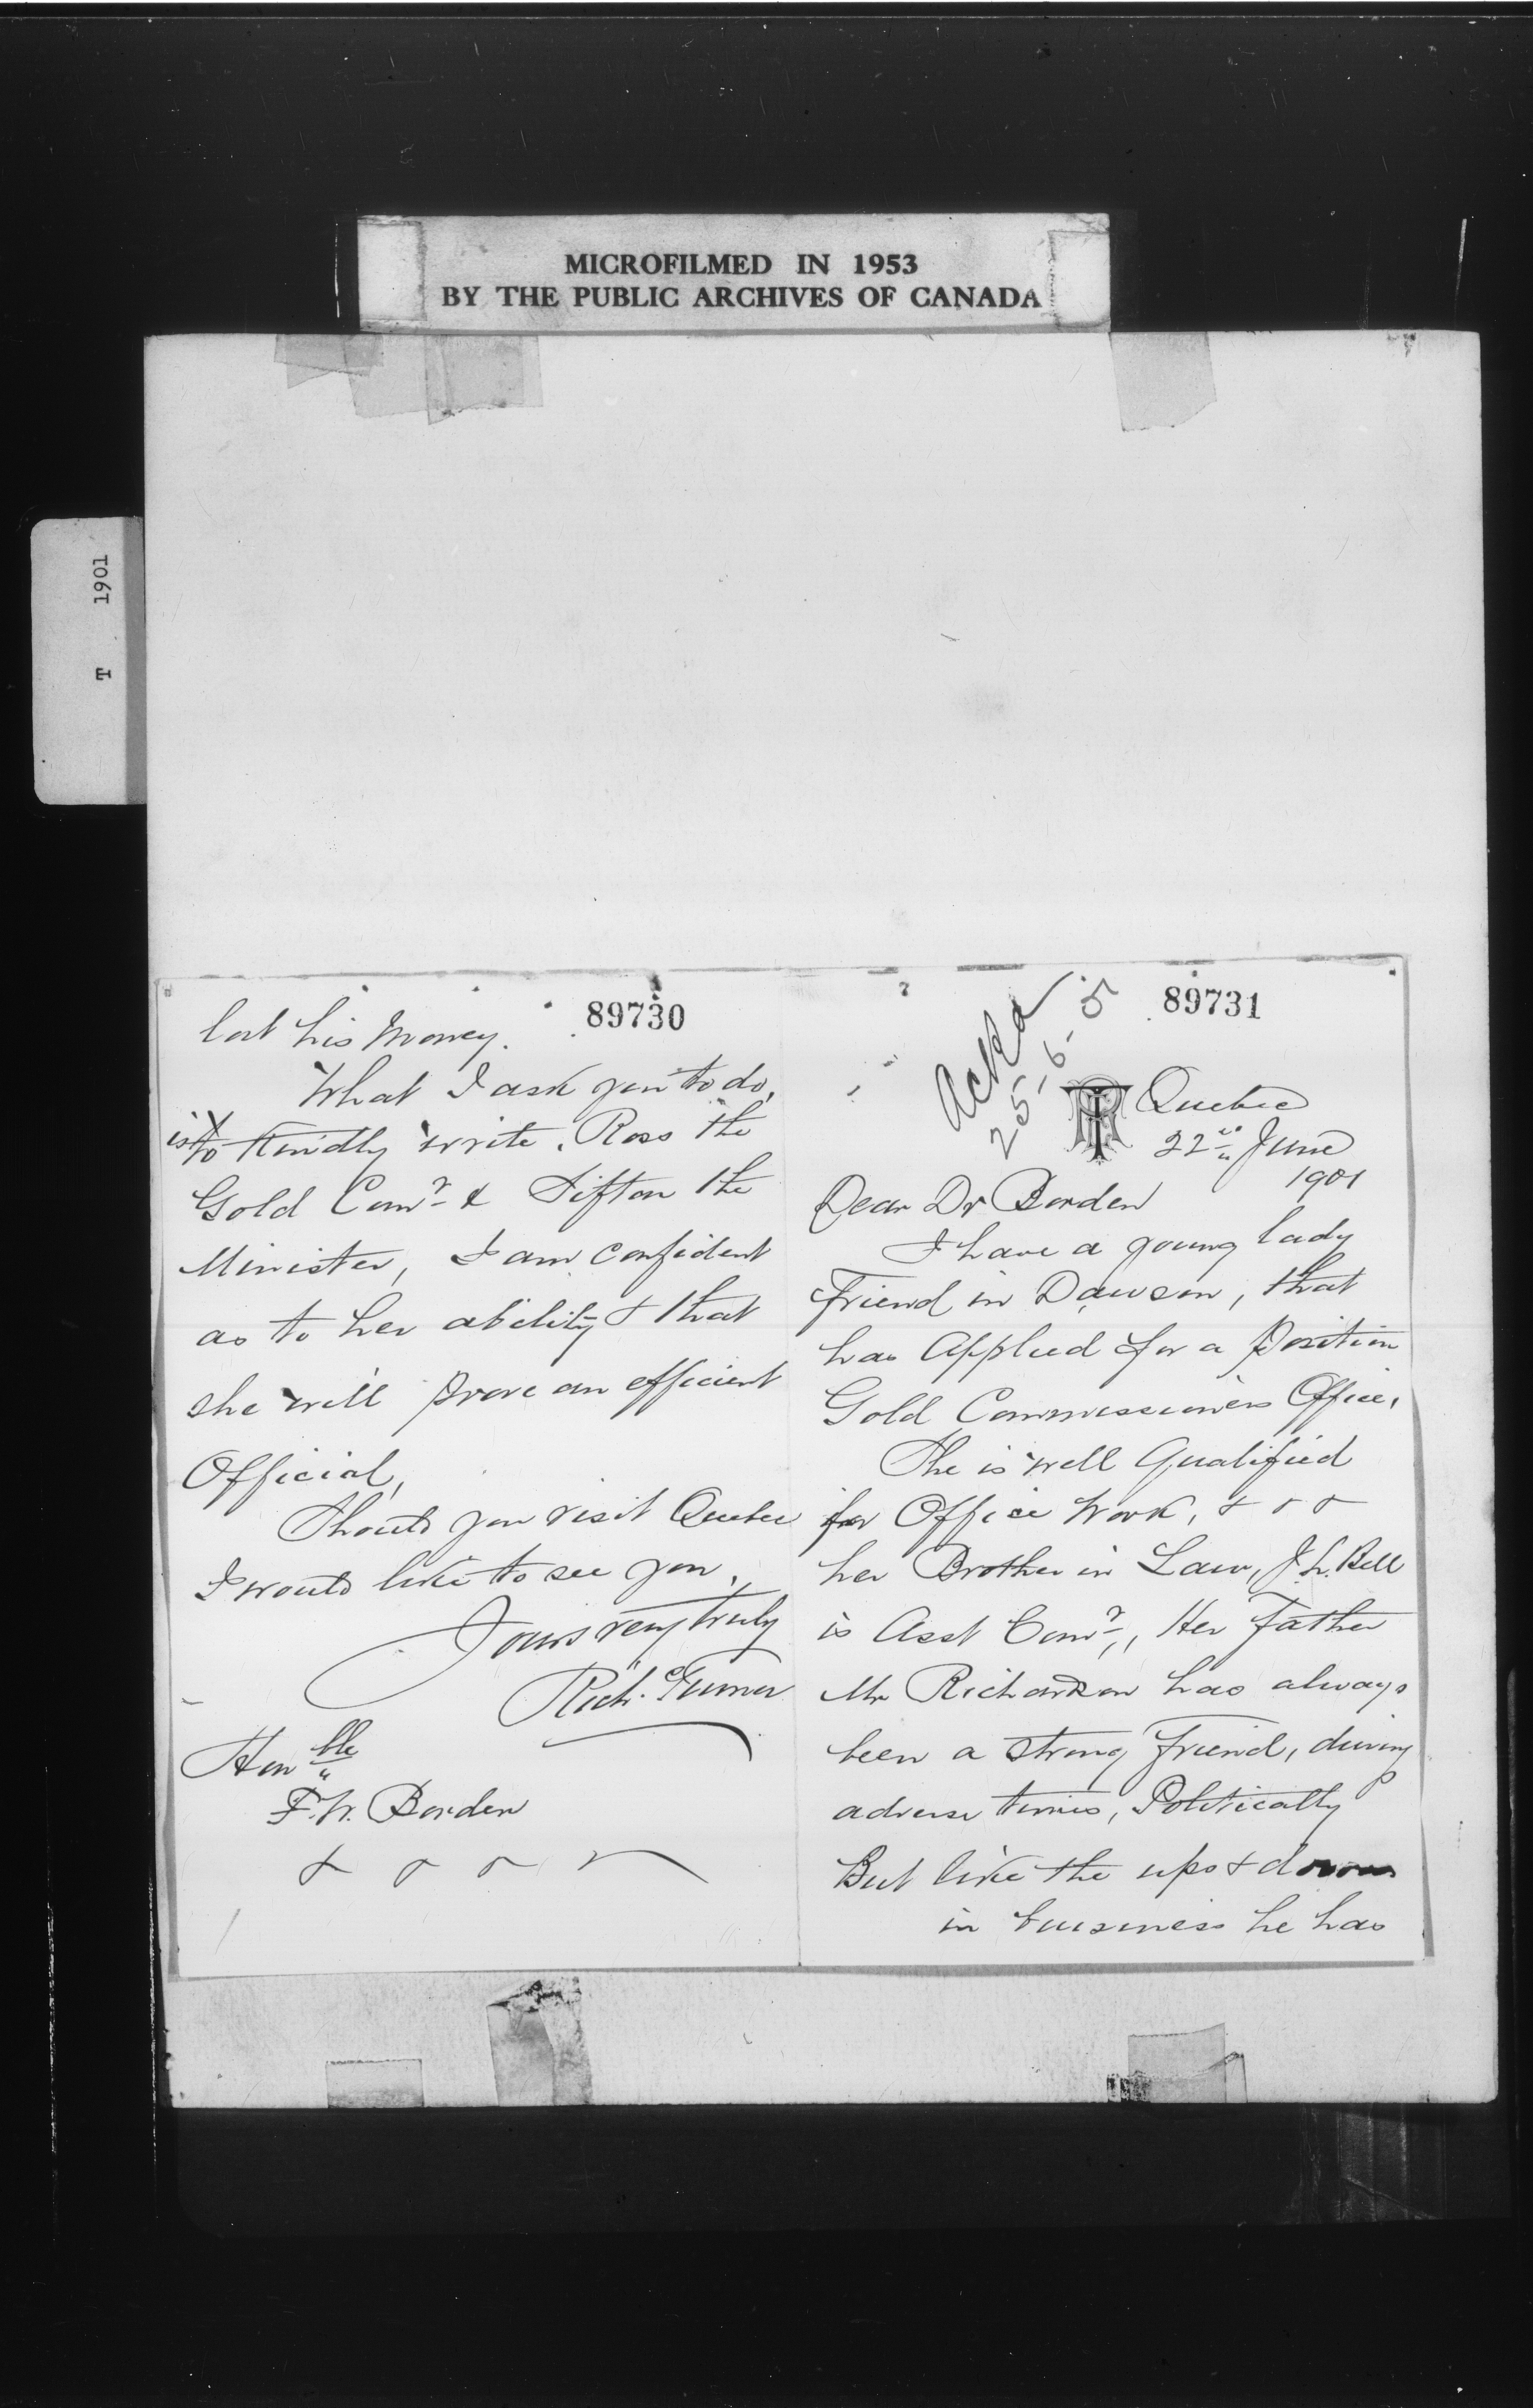 MICROFILMED IN 1953
BY THE PUBLIC ARCHIVES OF CANADA
T 1901
89730
lost his Money.
What I ask you to do,
is to Kindly write, Ross the
Gold Comr & Sifton the
Minister, I am confident
as to her ability & that
she will prove an efficient
Official,
Should you visit Quebec
I would like to see you,
Yours very truly
Rich. Turner
Honble
F. W. Borden
& & &
89731
Ackd
25-6-5
RT
Quebec
22nd June
1901
Dear Dr Borden
I have a young lady
Friend in Dawson, that
has Applied for a Position
Gold Commissioners Office,
She is well Qualified
for Office Work, & & &
her Brother in Law, J. L. Bell
is Asst Comr,, Her Father
Mr Richardson has always
been a strong Friend, during
adverse times, Politically
But like the ups & downs
in business he has